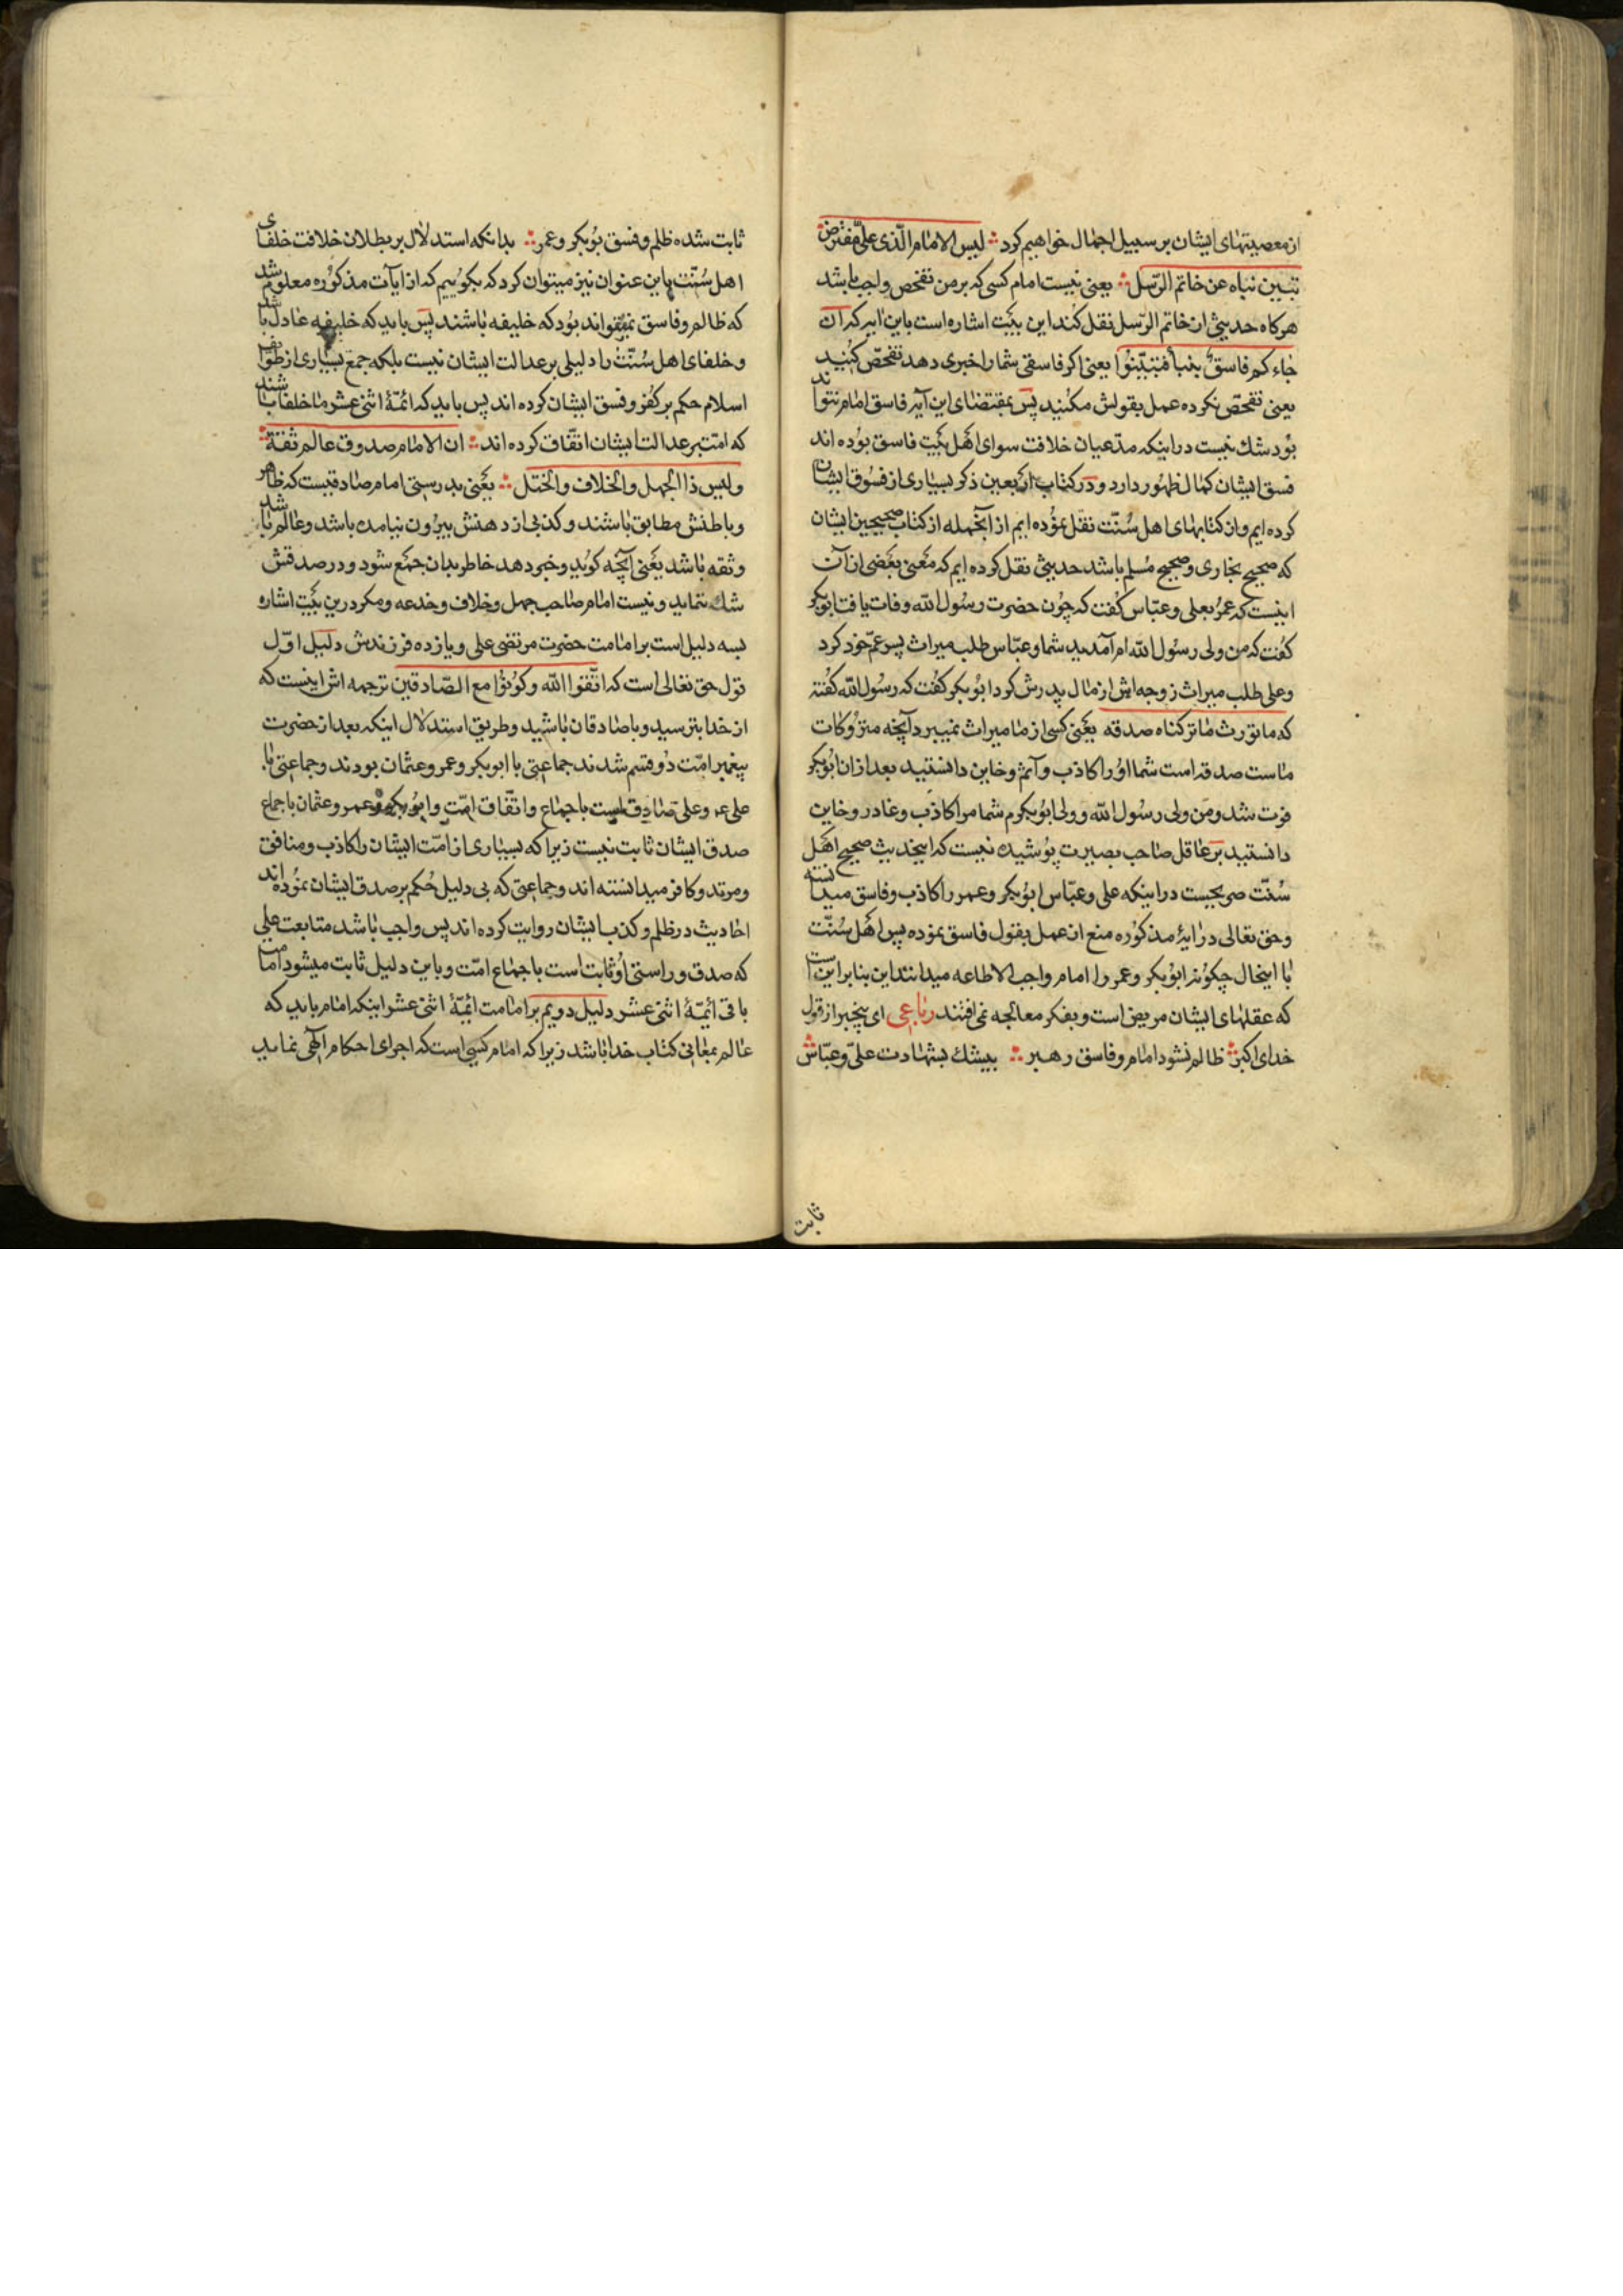 از معصیتهای ایشان بر سبیل اجمال خواهیم کرد ؞ لیس الامام الّذی علیّ مفترض
تبیین نباه عن خاتم الرّسل ؞ یعنی نیست امام کسی که بر من تفحص واجب باشد
هرکاه حدیثی از خاتم الرّسل نقل کند این بَیت اشاره است باین ایه که ان
جاءکم فاسق بنبأ فتبیّنوا یعنی اکر فاسقی شما را خبری دهد تفحّص کنید
یعنی تفحّص نکرده عمل بقولش مکنید پس بمقتضای این آیه فاسق امام نتواند
بود شك نیست در اینکه مدّعیان خلافت سوای اهل بَیت فاسق بوده اند
فسق ایشان کمال ظهور دارد و در کتاب اربعین ذکر بسیاری از فسوق ایشان
کرده ایم و از کتابهای اهل سُنّت نقل نموده ایم از آنجمله از کتاب صحیحین ایشان
که صحیح بخاری و صحیح مُسلم باشد حدیثی نقل کرده ایم که معنی بعَضی از آن
اینست که عمرُ بعلی و عبّاس کفت که چون حضرت رسُول الله وفات یافت ابوبکر
کفت که من ولی رسُول الله ام آمدید شما و عبّاس طلب میراث پسر عمّ خود کرد
و علی طلب میراث زوجه اش از مال پدرش کرد ابوُبکر کفت که رسُول الله کفته
که ما نورث ما ترکناه صدقه یعَنی کسی از ما میراث نمیبرد آنچه متروکات
ماست صدقه است شما اوُ را کاذب و آثم و خاین دانستید بعد از ان ابوُبکر
فوت شد و من ولی رسُول الله و ولی ابوُبکرم شما مرا کاذب و غادر و خاین
دانستید بر عاقل صاحب بصیرت پوُشیده نیست که اینحدیث صحیح اهَل
سُنّت صریحست در اینکه علی و عبّاس ابوُبکر و عمر را کاذب و فاسق میدانسته
و حق تعالی در ایۀ مذکوُره منع از عمل بقول فاسق نموده پس اهَل سُنّت
با اینحال چکوُنه ابوُبکر و عمر را امام واجب الاطاعه میدانند این بنابر این است
که عقلهای ایشان مریض است و بفکر معالجه نمی افتند رباعی ای بیخبر از قول
خدای اکبر ؞ ظالم نشود امام و فاسق رهبر ؞ بیشك بشهادت علیّ و عبّاس
ثابت
ثابت شده ظلم و فسق بوُبکر و عمر ؞ بدانکه استدلال بر بطلان خلافت خلفای
اهل سُنّت باین عنوان نیز میتوان کرد که بکوُییم که از ایآت مذکوُره معلوم شد
که ظالم و فاسق نمیتواند بوُد که خلیفه باشند پس باید که خلیفه عادل باشد
و خلفای اهل سُنّت را دلیلی بر عدالت ایشان نیست بلکه جمع بسیاری از طوایف
اسلام حکم بر کفر و فسق ایشان کرده اند پس باید که ائمّۀ اثنی عشر ما خلفا باشند
که امّت بر عدالت ایشان اتفّاق کرده اند ؞ ان الامام صدوق عالم ثقتة ؞
و لیس ذا الجهل و الخلاف و الختل ؞ یعَنی بدرستی امام صادقیست که ظاهر
و باطنش مطابق باشند و کذبی از دهنش بیروُن نیامده باشد و عالم باشد
و ثقه باشد یعَنی آنچه کوید و خبر دهد خاطر بدان جمَع شود و در صدقش
شك ننماید و نیست امام صاحب جهل و خلاف و خدعه و مکر درین بَیت اشاره
بسه دلیل است بر امامت حضرت مرتضی علی و یازده فرزندش دلیل اوّل
قول حق تعالی است که اتّقوا الله و کوُنوُا مع الصّادقین ترجمه اش اینست که
از خدا بترسید و با صادقان باشید و طریق استدلال اینکه بعد از حضرت
پیغمبر امّت دوُ قسم شدند جماعتی با ابوبکر و عمر و عثمان بودند و جماعتی با
علی عم و علی صادق است باجماع و اتفّاق امّت و ابوُبکر و عمر و عثمان باجماع
صدق ایشان ثابت نیست زیرا که بسیاری از امّت ایشان را کاذب و منافق
و مرتد و کافر میدانسته اند و جماعتی که بی دلیل حُکم بر صدق ایشان نموُده اند
احادیث در ظلم و کذب ایشان روایت کرده اند پس واجب باشد متابعت علی
که صدق و راستی اوُ ثابت است باجماع امّت و باین دلیل ثابت میشود امامت
باقی ائمّۀ اثنی عشر دلیل دویم بر امامت ائمّۀ اثنی عشر اینکه امام باید که
عالم بمعانی کتاب خدا باشد زیرا که امام کسی است که اجرای احکام الهی نماید